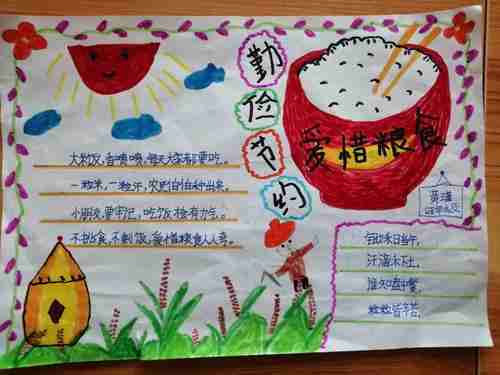 勤
俭
节
约
爱惜粮食
大米饭,香喷喷,每天大家都要吃。
一粒米,一粒汗,农民伯伯种出来。
小朋友,要牢记,吃饭
不挑食,不剩饭,爱惜粮食人人夸。
锄禾日当午,
汗滴禾下土,
谁知盘中餐,
粒粒皆辛苦。